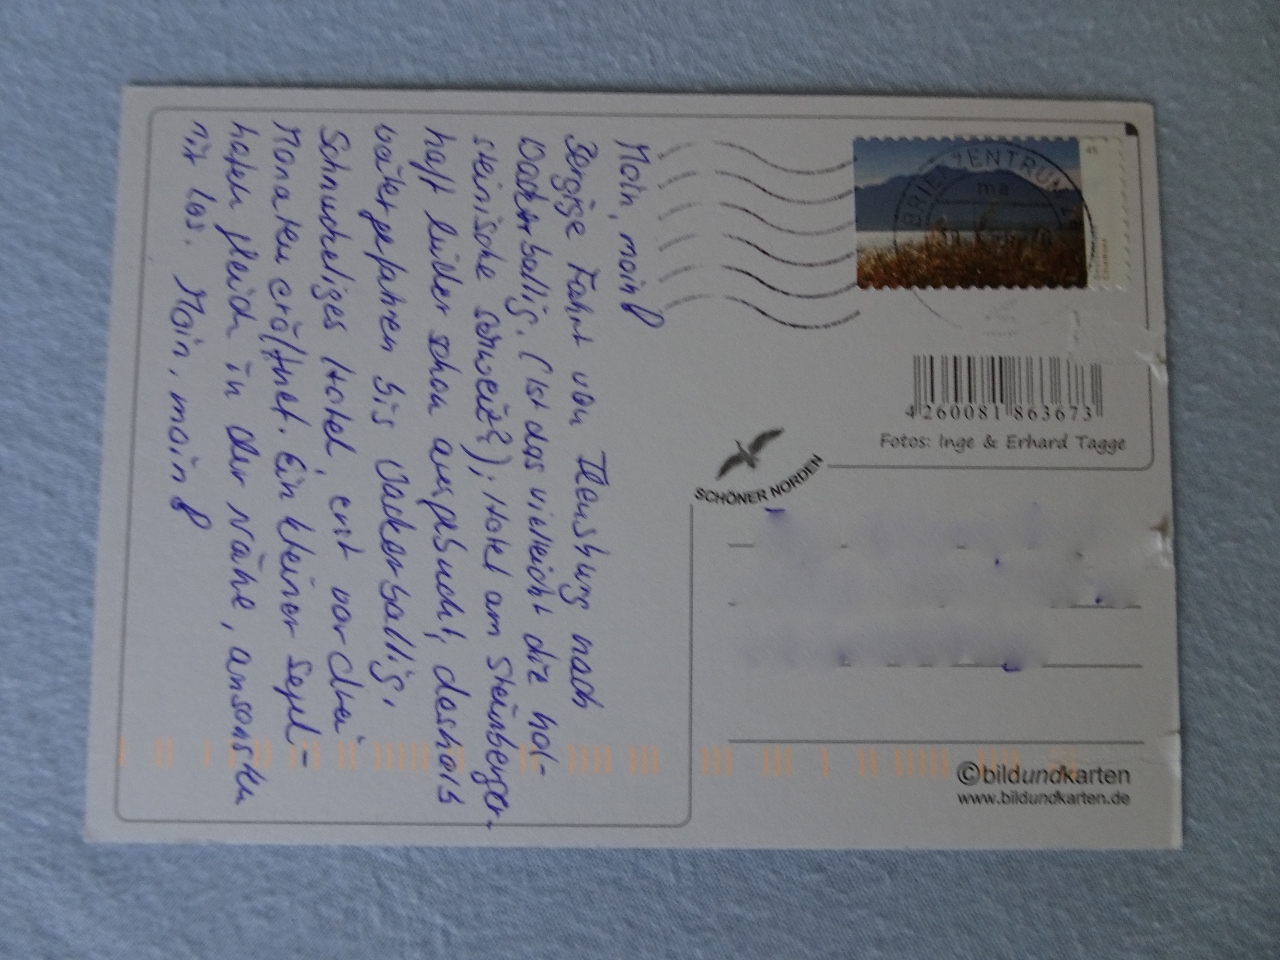 Moin, moin!
Bergige Fahrt von Flensburg nach
Wackerballig. (Ist das vielleicht die hol-
steinische Schweiz?), Hotel am Steinberger-
haff leider schon ausgebucht, deshalb
weitergefahren bis Wackerballig.
Schnuckeliges Hotel, erst vor drei
Monaten eröffnet. Ein kleiner Segel-
hafen gleich in der Nähe, ansonsten
nix los. Moin, moin!
BRIEFZENTRUM
ma
4260081863673
Fotos: Inge & Erhard Tagge
SCHÖNER NORDEN
©bildundkarten
www.bildundkarten.de